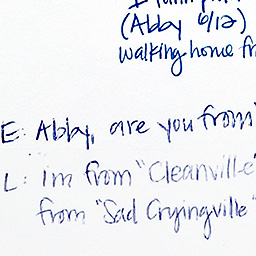 (Abby 6/12)
walking home fr
E: Abby, are you from
L: im from "Cleanville"
from "Sad Cryingville"